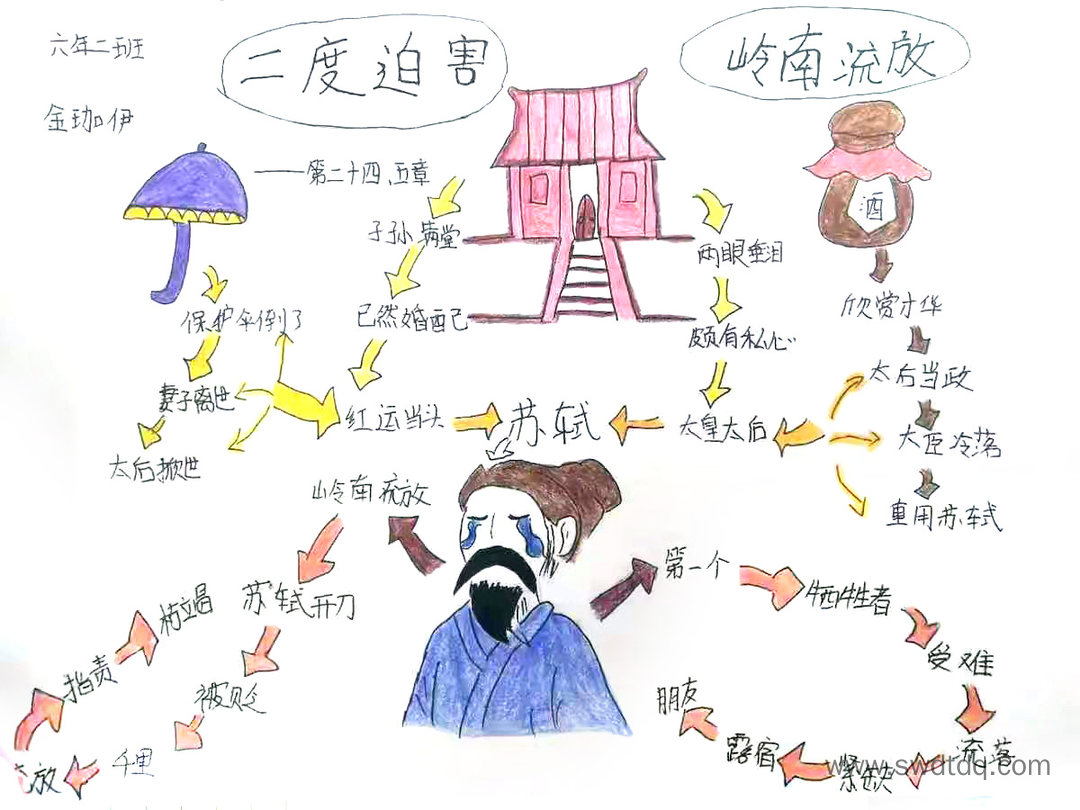 六年二班
金珈伊
二度迫害
岭南流放
第二十四、五章
子孙满堂
已然婚配己
红运当头
保护伞倒了
妻子离世
太后掀世
两眼垂泪
颇有私心
太皇太后
酒
欣赏才华
太后当政
大臣冷落
重用苏轼
苏轼
岭南流放
苏轼开刀
被贬
千里
放
指责
第一个
牺牲者
受难
流落
紧缺
露宿
朋友
www.swdtdq.com